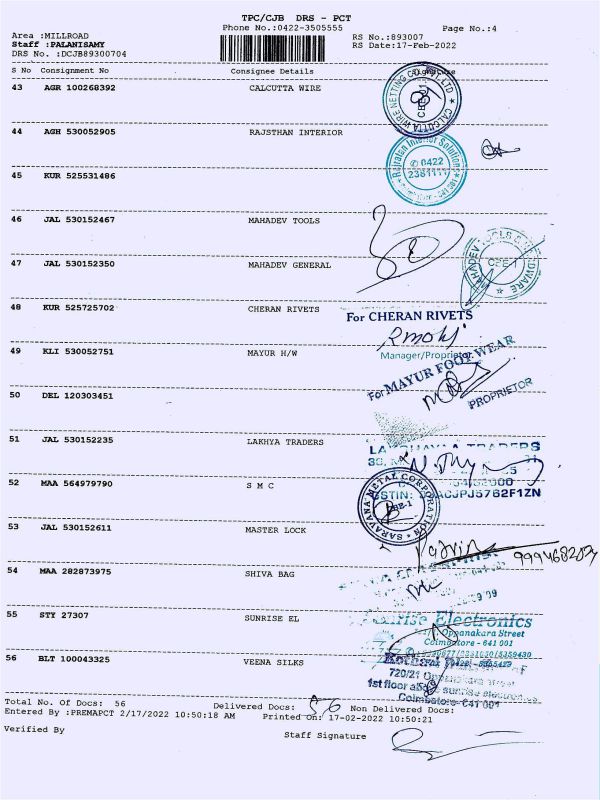 TPC/CJB DRS - PCT
Phone No.:0422-3505555 Page No.:4
Area :MILLROAD RS No.:893007
Staff :PALANISAMY RS Date:17-Feb-2022
DRS No. :DCJB89300704
S No Consignment No Consignee Details Signature
43 AGR 100268392 CALCUTTA WIRE
44 AGR 530052905 RAJSTHAN INTERIOR
0422
45 KUR 525531486
46 JAL 530152467 MAHADEV TOOLS
47 JAL 530152350 MAHADEV GENERAL
CBE-1
48 KUR 525725702 CHERAN RIVETS
For CHERAN RIVETS
Manager/Proprietor
49 KLI 530052751 MAYUR H/W
For MAYUR FOOT WEAR
PROPRIETOR
50 DEL 120303451
51 JAL 530152235 LAKHYA TRADERS
TRADERS
52 MAA 564979790 S M C
SARAVANA METAL CORPORATION
CBE-1
53 JAL 530152611 MASTER LOCK
54 MAA 282873975 SHIVA BAG
55 STY 27307 SUNRISE EL
Sunrise Electronics
Oppanakara Street
Coimbatore - 641 001
56 BLT 100043325 VEENA SILKS
720/21
1st floor
Coimbatore- 641 001
Total No. Of Docs: 56 Delivered Docs: 56 Non Delivered Docs:
Entered By :PREMAPCT 2/17/2022 10:50:18 AM Printed On: 17-02-2022 10:50:21
Verified By Staff Signature